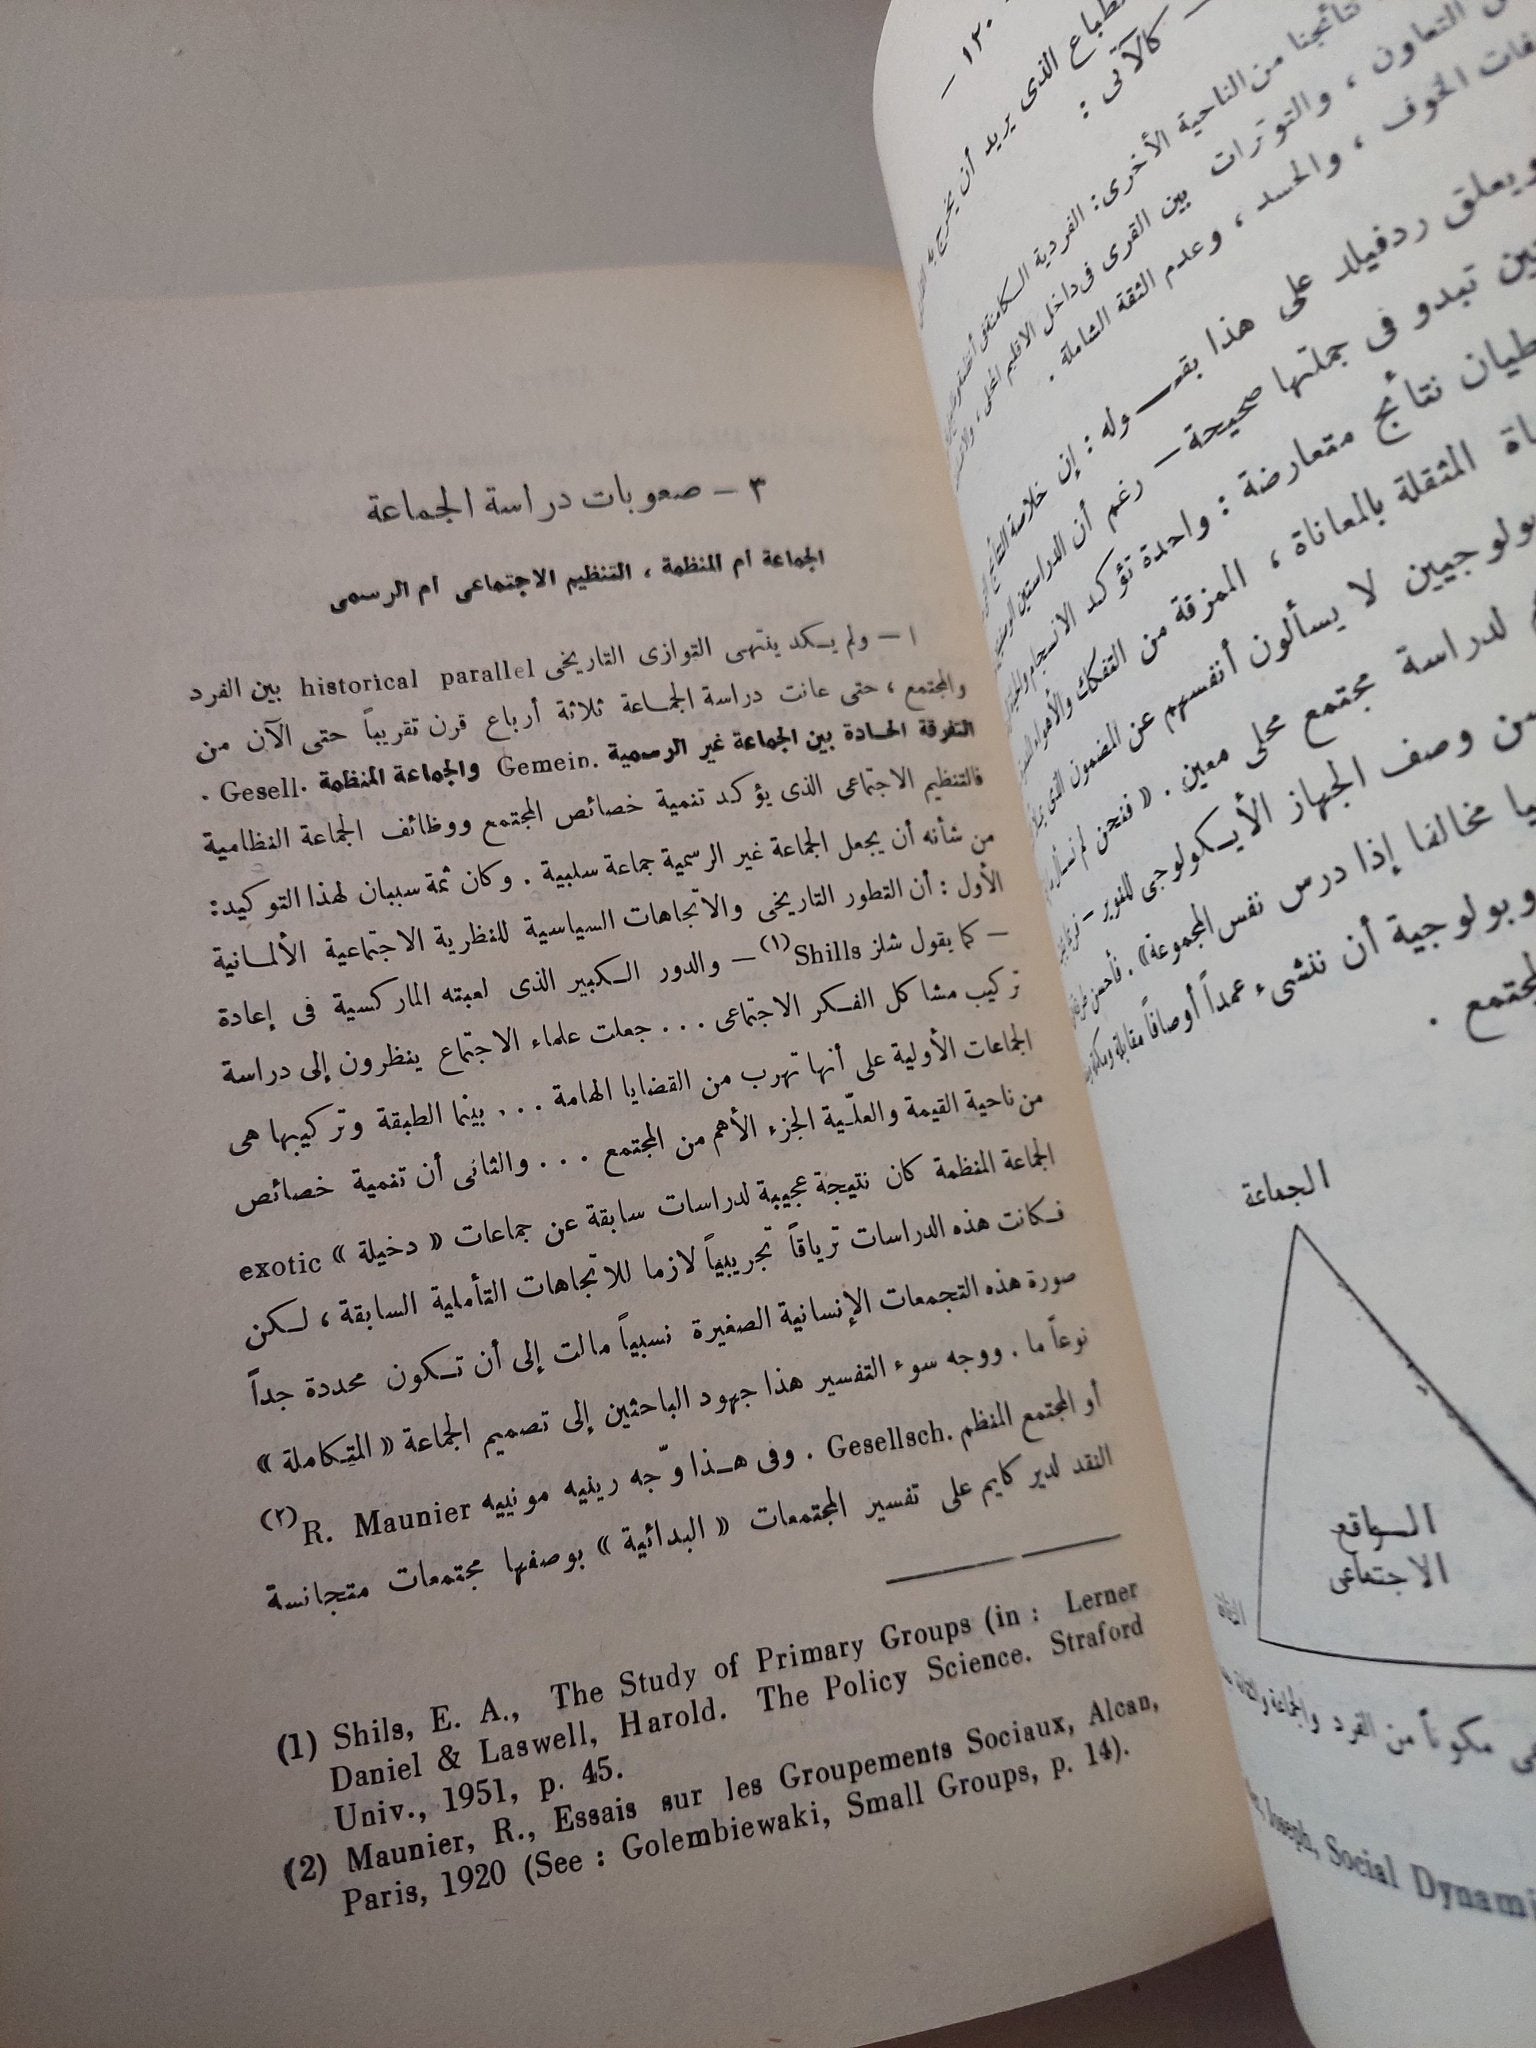 ٣ — صعوبات دراسة الجماعة
الجماعة أم المنظمة ، التنظيم الاجتماعى أم الرسمى
ا — ولم يكد ينتهى التوازى التاريخى historical parallel بين الفرد
والمجتمع ، حتى عانت دراسة الجماعة ثلاثة أرباع قرن تقريباً حتى الآن من
التفرقة الحادة بين الجماعة غير الرسمية Gemein. والجماعة المنظمة Gesell. .
فالتنظيم الاجتماعى الذى يؤكد تنمية خصائص المجتمع ووظائف الجماعة النظامية
من شأنه أن يجعل الجماعة غير الرسمية جماعة سلبية . وكان ثمة سببان لهذا التوكيد:
الأول : أن التطور التاريخى والاتجاهات السياسية للنظرية الاجتماعية الألمانية
— كما يقول شلز Shills(١) — والدور الكبير الذى لعبته الماركسية فى إعادة
تركيب مشاكل الفكر الاجتماعى . . . جعلت علماء الاجتماع ينظرون إلى دراسة
الجماعات الأولية على أنها تهرب من القضايا الهامة . . . بينما الطبقة وتركيبها هى
من ناحية القيمة والعلّية الجزء الأهم من المجتمع . . . والثانى أن تنمية خصائص
الجماعة المنظمة كان نتيجة عجيبة لدراسات سابقة عن جماعات « دخيلة » exotic
فكانت هذه الدراسات ترياقاً تجريبياً لازما للاتجاهات التأملية السابقة ، لكن
صورة هذه التجمعات الإنسانية الصغيرة نسبياً مالت إلى أن تكون محددة جداً
نوعاً ما . ووجه سوء التفسير هذا جهود الباحثين إلى تصميم الجماعة « المتكاملة »
أو المجتمع المنظم Gesellsch. . وفى هذا وّجه رينيه مونييه R. Maunier(٢)
النقد لدير كايم على تفسير المجتمعات « البدائية » بوصفها مجتمعات متجانسة
(1) Shils, E. A., The Study of Primary Groups (in : Lerner
Daniel & Laswell, Harold. The Policy Science. Straford
Univ., 1951, p. 45.
(2) Maunier, R., Essais sur les Groupements Sociaux, Alcan,
Paris, 1920 (See : Golembiewaki, Small Groups, p. 14).
١٢٠ —
الذى يريد أن يخرج به
كالآتى :
نتائجنا من الناحية الأخرى : الفردية الكامنة
التعاون ، والتوترات بين القرى فى داخل الاقليم المحلى ،
الخوف ، والحسد ، وعدم الثقة الشاملة .
ويعلق ردفيلد على هذا بقوله : إن خلاصة النتائج
تبدو فى جملتها صحيحة — رغم أن الدراستين
نتائج متعارضة : واحدة تؤكد الانسجام
المثقلة بالمعاناة ، الممزقة من التفكك والأهواء
لا يسألون أنفسهم عن المضمون الذى
لدراسة مجتمع محلى معين . « فنحن لم نسأل
وصف الجهاز الأيكولوجى للنوير —
مخالفا إذا درس نفس المجموعة » . فأحسن
أن ننشىء عمداً أوصافاً مقابلة
الجماعة
الواقع
الاجتماعى
مكوناً من الفرد والجماعة
Joseph, Social